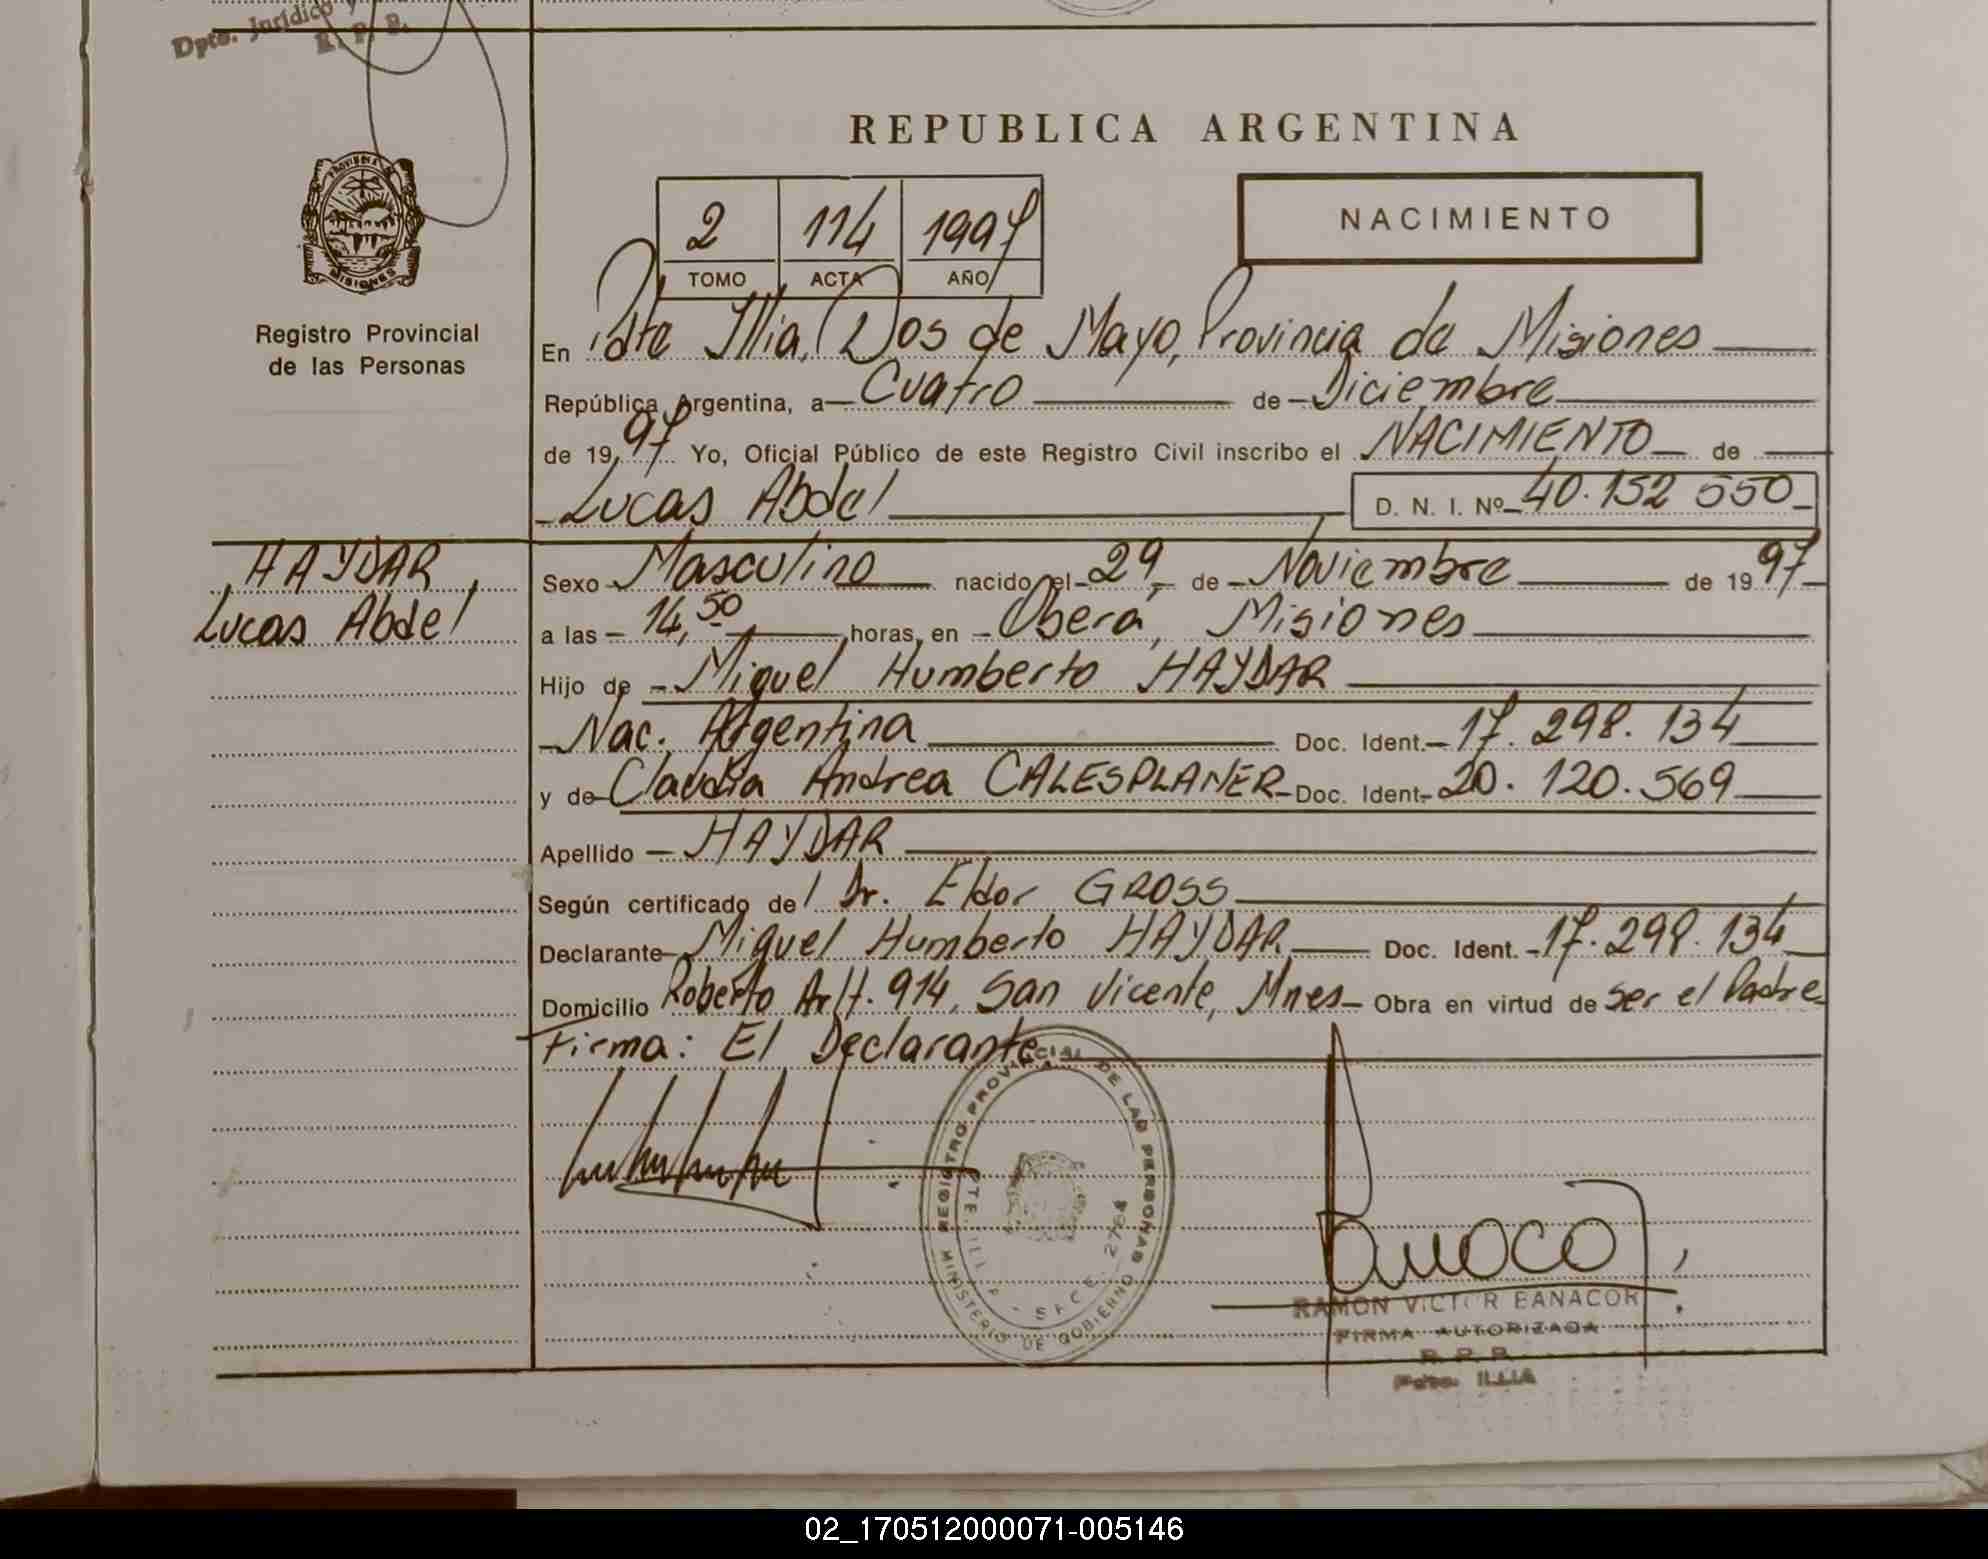 Dpto. Jurídico y
R. P. P.
REPUBLICA ARGENTINA
PROVINCIA DE
MISIONES
2 114 1997
TOMO ACTA AÑO
NACIMIENTO
Registro Provincial
de las Personas
En Pdte Illia, Dos de Mayo, Provincia de Misiones
República Argentina, a Cuatro de Diciembre
de 1997 Yo, Oficial Público de este Registro Civil inscribo el NACIMIENTO de
Lucas Abdel D. N. I. Nº 40.152 550
HAYDAR
Lucas Abdel
Sexo Masculino nacido el 29 de Noviembre de 1997
a las 14,50 horas, en Oberá, Misiones
Hijo de Miguel Humberto HAYDAR
Nac. Argentina Doc. Ident. 17.298.134
y de Claudia Andrea CALESPLANER Doc. Ident. 20.120.569
Apellido HAYDAR
Según certificado del Dr. Eldor GROSS
Declarante Miguel Humberto HAYDAR Doc. Ident. 17.298.134
Domicilio Roberto Arlt. 914, San Vicente, Mnes Obra en virtud de ser el Padre
Firma: El Declarante
REGISTRO PROVINCIAL DE LAS PERSONAS
MINISTERIO DE GOBIERNO
RAMON VICTOR BANACOR
FIRMA AUTORIZADA
R. P. P.
Pdte. ILLIA
02_170512000071-005146